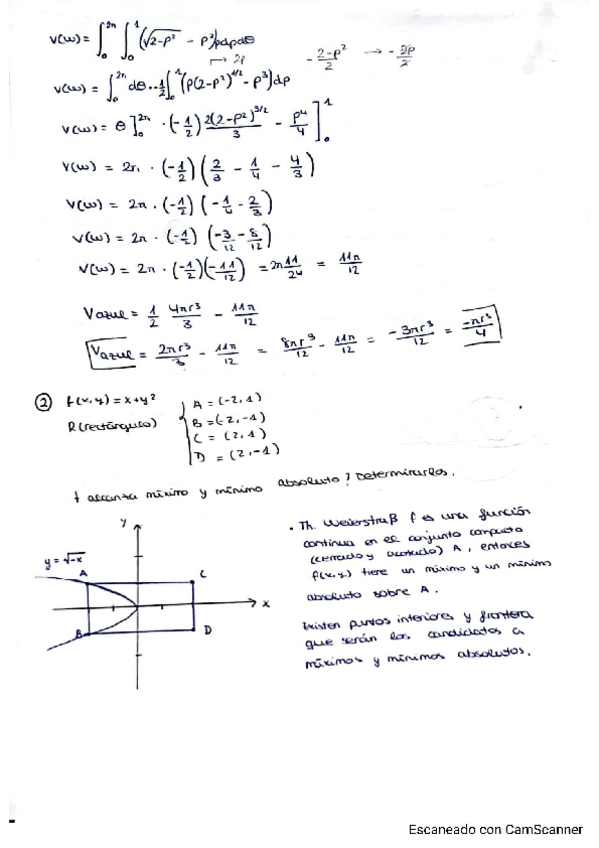 V(w) = ∫₀^{2π} ∫₀^1 (√2-ρ² - ρ²)ρdρdθ
↦ 2ρ
-2-ρ²/2 → -2ρ/2
V(w) = ∫₀^{2π} dθ · -1/2 ∫₀^1 (ρ(2-ρ²)^{1/2} - ρ³)dρ
V(w) = θ]₀^{2π} · (-1/2) 2(2-ρ²)^{3/2}/3 - ρ⁴/4 ]₀^1
V(w) = 2π · (-1/2) (2/3 - 1/4 - 4/3)
V(w) = 2π · (-1/2) (-1/4 - 2/3)
V(w) = 2π · (-1/2) (-3/12 - 8/12)
V(w) = 2π · (-1/2)(-11/12) = 2π 11/24 = 11π/12
Vazul = 1/2 4πr³/3 - 11π/12
Vazul = 2πr³/3 - 11π/12 = 8πr³/12 - 11π/12 = -3πr³/12 = -πr³/4
② f(x,y) = x+y²
R(rectángulo)
A = (-2,1)
B = (-2,-1)
C = (2,1)
D = (2,-1)
f alcanza máximo y mínimo absoluto? Determinarlos.
y = √-x
A
B
C
D
x
y
• Th. Weierstraβ f es una función
continua en el conjunto compacto
(cerrado y acotado) A, entonces
f(x,y) tiene un máximo y un mínimo
absoluto sobre A.
Existen puntos interiores y frontera
que serán los candidatos a
máximos y mínimos absolutos.
Escaneado con CamScanner